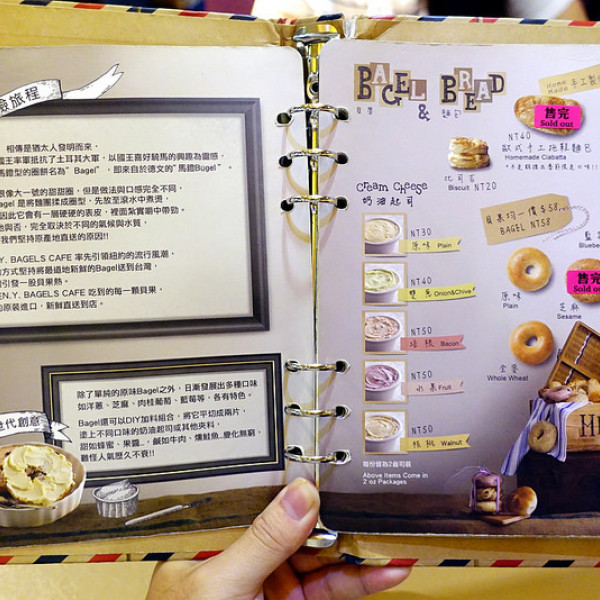 險旅程
相傳是猶太人發明而來，
國王率軍抵抗了土耳其大軍，以國王喜好騎馬的興趣為靈感，
馬鐙型的圈餅名為" Bagel" ，即來自於德文的" 馬鐙Bugel" 。
很像大一號的甜甜圈，但是做法與口感完全不同，
Bagel 是將麵團揉成圈型，先放至滾水中煮燙，
因此它會有一層硬硬的表皮，裡面紮實嚼中帶勁。
與否，完全取決於不同的氣候與水質，
我們堅持原產地直送的原因!!
N.Y. BAGELS CAFE 率先引領紐約的流行風潮，
方式堅持將最道地新鮮的Bagel送到台灣，
引發一股貝果熱。
N.Y. BAGELS CAFE 吃到的每一顆貝果，
原裝進口，新鮮直送到店。
世代創意
除了單純的原味Bagel之外，日漸發展出多種口味
如洋蔥、芝麻、肉桂葡萄、藍莓等，各有特色。
Bagel還可以DIY加料組合，將它平切成兩片，
塗上不同口味的奶油起司或其他夾料，
甜如蜂蜜、果醬... 鹹如牛肉、燻鮭魚...變化無窮，
難怪人氣歷久不衰!!
BAGEL & BREAD
貝果 麵包
Home Made 手工製
售完
Sold out
NT40
歐式手工拖鞋麵包
Homemade Ciabatta
比司吉
Biscuit NT20
Cream Cheese
奶油起司
NT30
原味 Plain
NT40
雙蔥Onion&Chive
NT50
培根 Bacon
NT50
水果Fruit
NT50
核桃 Walnut
每份皆為2盎司裝
Above Items Come in
2 oz Packages
貝果均一價$58
BAGEL NT58
Blueber
原味
Plain
售完
Sold out
芝麻
Sesame
全麥
Whole Wheat